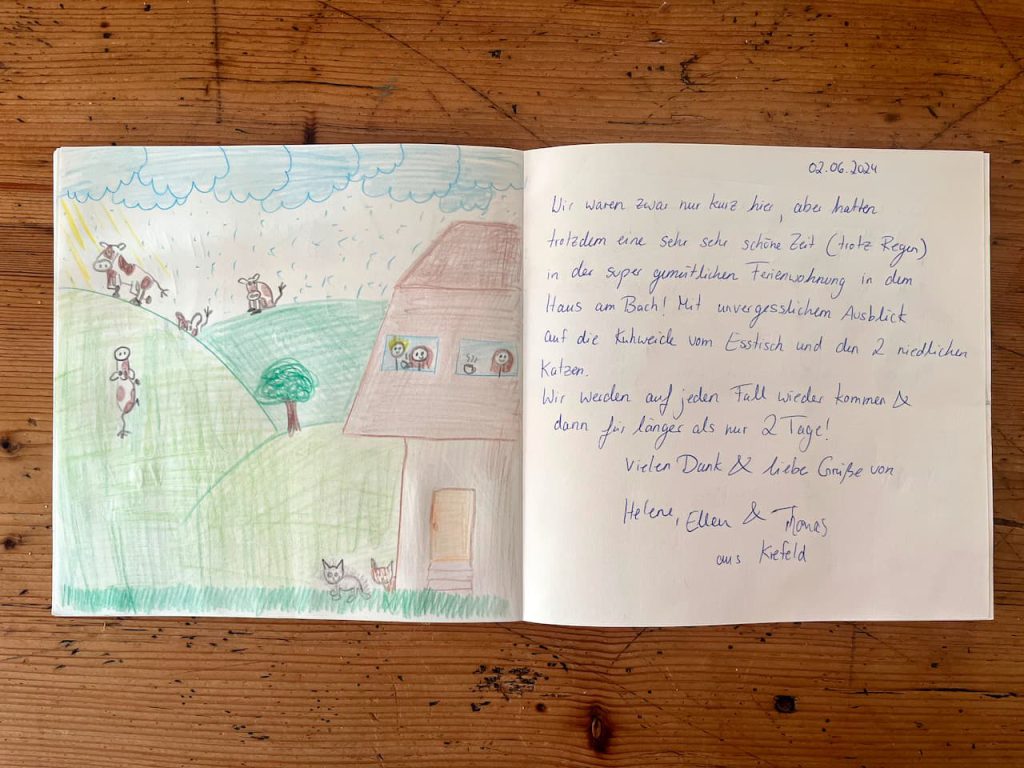 02.06.2024
Wir waren zwar nur kurz hier, aber hatten
trotzdem eine sehr sehr schöne Zeit (trotz Regen)
in der super gemütlichen Ferienwohnung in dem
Haus am Bach! Mit unvergesslichem Ausblick
auf die Kuhweide vom Esstisch und den 2 niedlichen
Katzen.
Wir werden auf jeden Fall wieder kommen &
dann für länger als nur 2 Tage!
Vielen Dank & liebe Grüße von
Helene, Ellen & Thomas
aus Krefeld